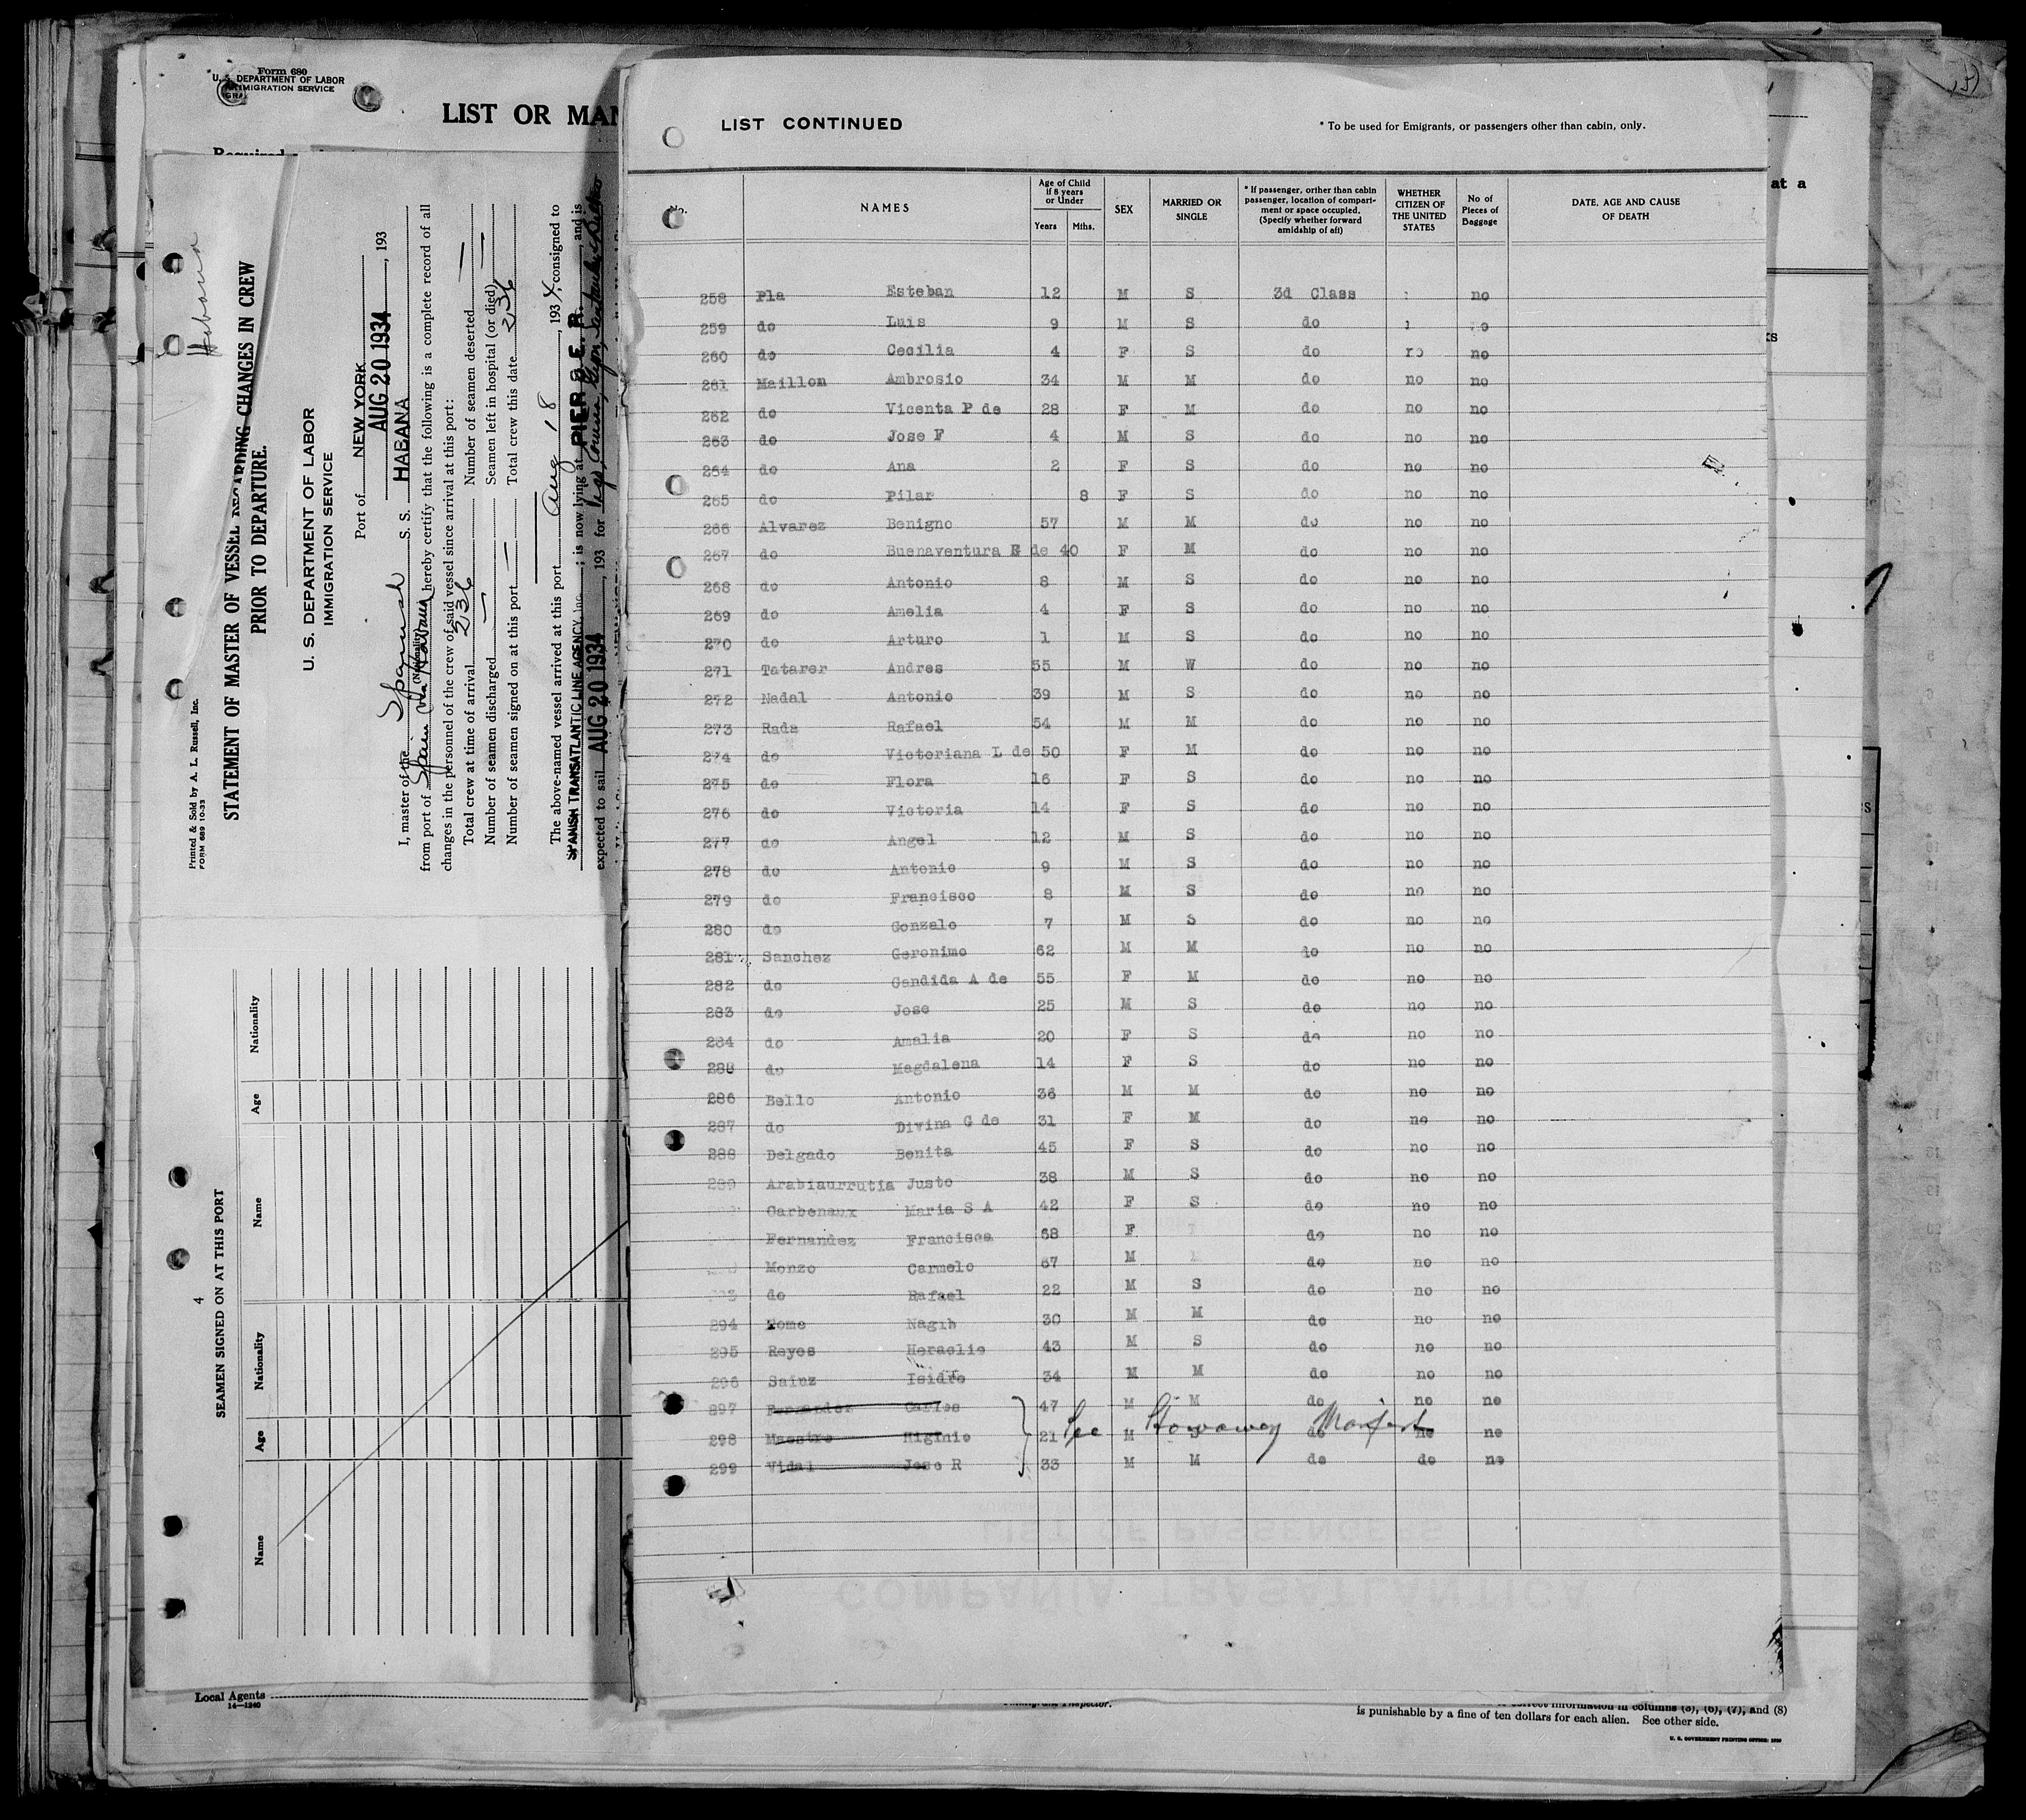 Form 680
U. S. DEPARTMENT OF LABOR
IMMIGRATION SERVICE
LIST OR MAN
Required
Habana
Printed & Sold by A. L. Russell, Inc.
FORM 689 10-33
STATEMENT OF MASTER OF VESSEL REGARDING CHANGES IN CREW
PRIOR TO DEPARTURE.
U. S. DEPARTMENT OF LABOR
IMMIGRATION SERVICE
Port of NEW YORK
AUG 20 1934, 193
I, master of the Spanish S. S. HABANA
(Nationality)
from port of Spain via Havana hereby certify that the following is a complete record of all
changes in the personnel of the crew of said vessel since arrival at this port:
Total crew at time of arrival 236 Number of seamen deserted —
Number of seamen discharged — Seamen left in hospital (or died) —
Number of seamen signed on at this port — Total crew this date 236
The above-named vessel arrived at this port Aug 18, 1934, consigned to
SPANISH TRANSATLANTIC LINE AGENCY, Inc. ; is now lying at PIER 8 E. R. and is
expected to sail AUG 20 1934, 193 for Vigo, Coruna, Gijon, Santander,
4
SEAMEN SIGNED ON AT THIS PORT
Name Age Nationality Name Age Nationality
Local Agents
14—1240
LIST CONTINUED
* To be used for Emigrants, or passengers other than cabin, only.
No. NAMES Age of Child if 8 years or Under Years Mths. SEX MARRIED OR SINGLE * If passenger, orther than cabin passenger, location of compartiment or space occupied, (Specify whether forward amidship of aft) WHETHER CITIZEN OF THE UNITED STATES No of Pieces of Baggage DATE, AGE AND CAUSE OF DEATH
258 Pla Esteban 12 M S 3d Class no
259 do Luis 9 M S do no
260 do Cecilia 4 F S do no no
261 Maillon Ambrosio 34 M M do no no
262 do Vicenta P de 28 F M do no no
263 do Jose F 4 M S do no no
264 do Ana 2 F S do no no
265 do Pilar 8 F S do no no
266 Alvarez Benigno 57 M M do no no
267 do Buenaventura R de 40 F M do no no
268 do Antonio 8 M S do no no
269 do Amelia 4 F S do no no
270 do Arturo 1 M S do no no
271 Tatarer Andres 55 M W do no no
272 Nadal Antonio 39 M S do no no
273 Rada Rafael 54 M M do no no
274 do Victoriana L de 50 F M do no no
275 do Flora 16 F S do no no
276 do Victoria 14 F S do no no
277 do Angel 12 M S do no no
278 do Antonio 9 M S do no no
279 do Francisco 8 M S do no no
280 do Gonzalo 7 M S do no no
281 Sanchez Geronimo 62 M M do no no
282 do Candida A de 55 F M do no no
283 do Jose 25 M S do no no
284 do Amalia 20 F S do no no
285 do Magdalena 14 F S do no no
286 Bello Antonio 36 M M do no no
287 do Divina G de 31 F M do no no
288 Delgado Benita 45 F S do no no
289 Arabiaurrutia Justo 38 M S do no no
Carbenaux Maria S A 42 F S do no no
Fernandez Francisca 68 F do no no
Monzo Carmelo 67 M do no no
do Rafael 22 M S do no no
294 Tome Nagib 30 M M do no no
295 Reyes Heraclio 43 M S do no no
296 Sainz Isidro 34 M M do no no
297 Fernandez Carlos 47 M M do no no
298 Maestre Higinio 21 M S do no no
299 Vidal Jose R 33 M M do do no
See Stowaway Manifest
LIST OF PASSENGERS
COMPAÑIA TRASATLANTICA
Immigrant Inspector.
correct information in columns (3), (6), (7), and (8)
is punishable by a fine of ten dollars for each alien. See other side.
U. S. GOVERNMENT PRINTING OFFICE:
at a